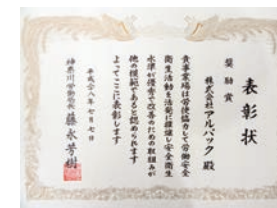 表彰状
奨励賞
株式会社アルバック 殿
貴事業場は労使協力して労働安全
衛生活動を活発に推進し安全衛生
水準が優秀で改善のための取組みが
他の模範であると認められます
よってここに表彰します
平成二八年七月七日
神奈川労働局長 藤永芳樹